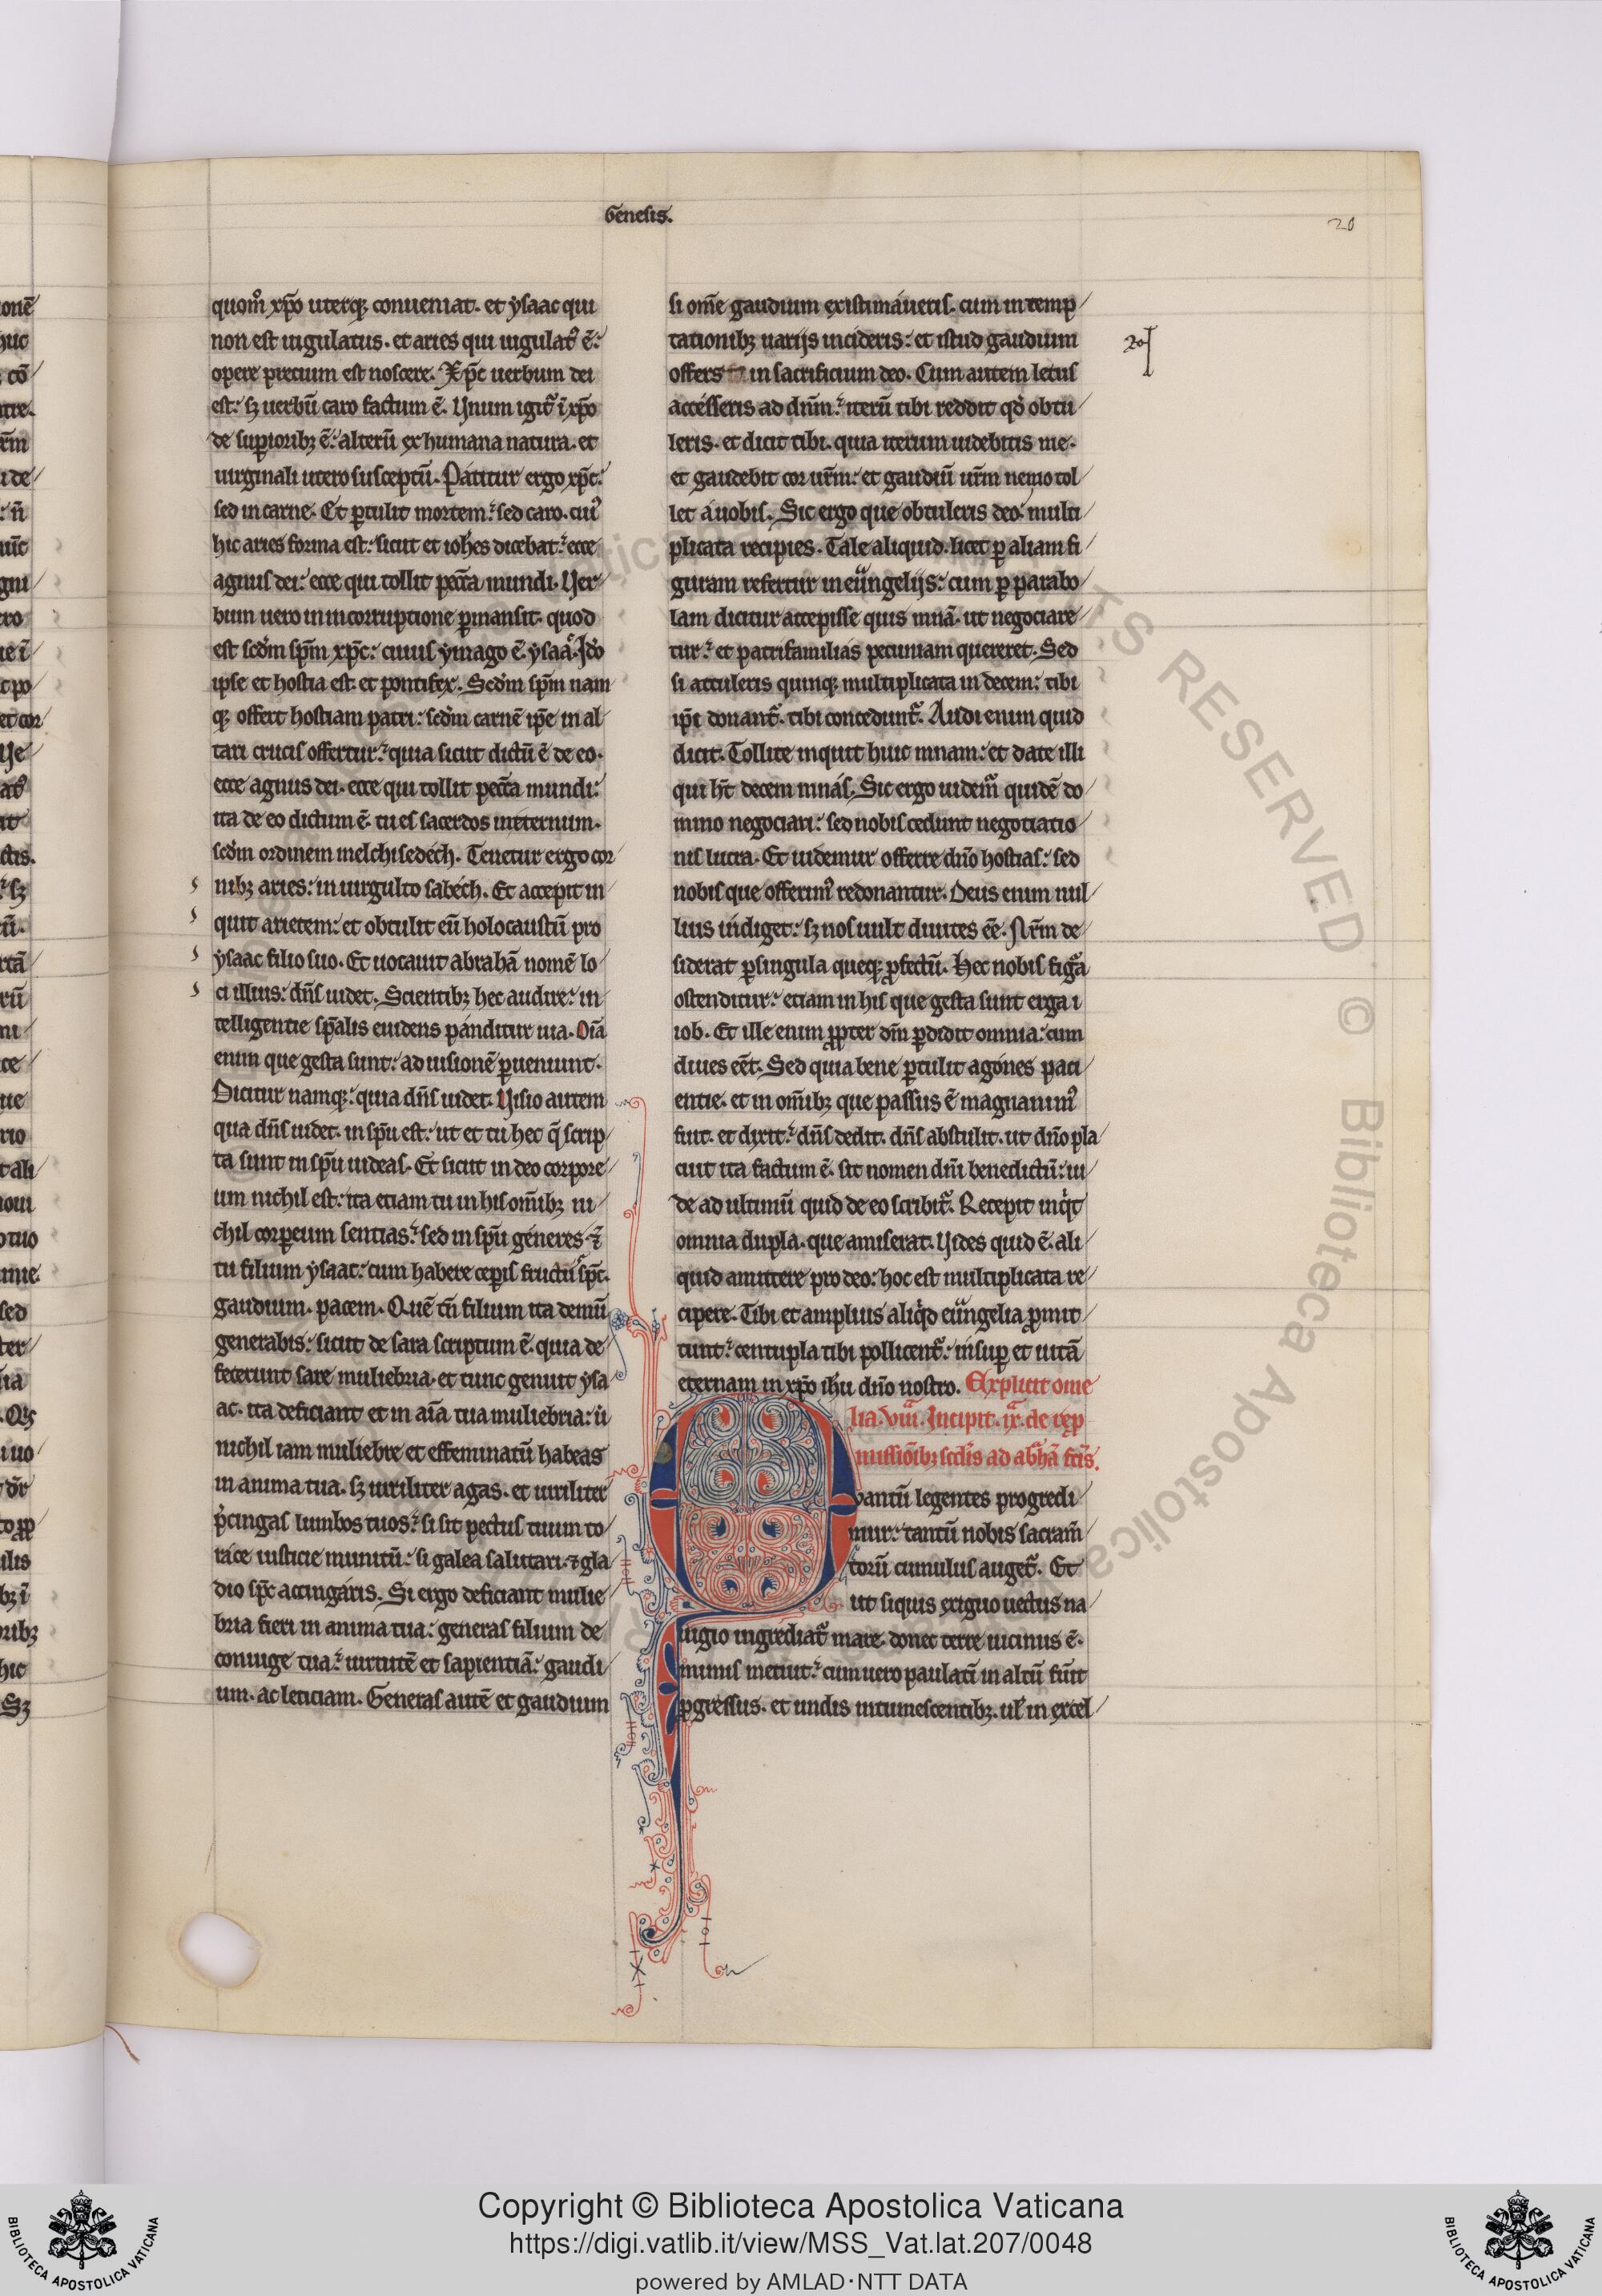 Genesis.
20
quom̊ xp̄o uterq; conueniat. et ysaac qui
non est iugulatus. et aries qui iugulat᾽ ē.
opere precium est noscere. Xp̄c uerbum dei
est: sꝫ uerbū caro factum ē. Vnum igit᷑ ī xp̄o
de supioribꝫ ē: alterū ex humana natura. et
uirginali utero susceptū. Patitur ergo xp̄c:
sed in carne. Et ꝑtulit mortem: sed caro. cui᾽
hic aries forma est: sicut et ioh̄es dicebat: ecce
agnus dei: ecce qui tollit pecc̄a mundi. Ver
bum uero in incorruptione ꝑmansit. quod
est scd̄m sp̄m xp̄c: cuius ymago ē ysaac. Ido
ipse et hostia est. et pontifex. Scd̄m sp̄m nam
q; offert hostiam patri: scd̄m carnē ip̄e in al
tari crucis offertur: quia sicut dictū ē de eo.
ecce agnus dei. ecce qui tollit pecc̄a mundi:
ita de eo dictum ē. tu es sacerdos in eternum.
scd̄m ordinem melchisedech. Tenetur ergo cor
nibꝫ aries: in uirgulto sabech. Et accepit in
quit arietem: et obtulit eū holocaustū pro
ysaac filio suo. Et uocauit abrahā nomē lo
ci illius: dn̄s uidet. Scientibꝫ hec audire: in
telligentie sp̄alis euidens panditur uia. Oīa
enim que gesta sunt: ad uisionē ꝑueniunt.
Dicitur namq;: quia dn̄s uidet. Visio autem
qua dn̄s uidet. in sp̄u est: ut et tu hec q̄ scrip
ta sunt in sp̄u uideas. Et sicut in deo corpore
um nichil est: ita etiam tu in his om̄ibꝫ ni
chil corꝑeum sentias: sed in sp̄u generes ⁊
tu filium ysaac: cum habere ceperis fructū sp̄c.
gaudium. pacem. Quē tn̄ filium ita demū
generabis: sicut de sara scriptum ē. quia de
fecerunt sare muliebria. et tunc genuit ysa
ac. ita deficiant et in aīa tua muliebria: ū
nichil iam muliebre et effeminatū habeas
in anima tua. sꝫ uiriliter agas. et uiriliter
p̄cingas lumbos tuos: si sit pectus tuum to
race iusticie munitū: si galea salutari. ⁊ gla
dio sp̄c accingaris. Si ergo deficiant mulie
bria fieri in anima tua: generas filium de
coniuge tua: uirtutē et sapientiā: gaudi
um. ac leticiam. Generas autē et gaudium
si om̄e gaudium existimaueris. cum in temp
tationibꝫ uarijs incideris: et istud gaudium
offers in sacrificium deo. Cum autem letus
accesseris ad dn̄m: iterū tibi reddit qd̄ obtu
leris. et dicit tibi. quia iterum uidebitis me.
et gaudebit cor ur̄m: et gaudiū ur̄m nemo tol
let a uobis. Sic ergo que obtuleris deo: multi
plicata recipies. Tale aliquid. licet ꝑ aliam fi
guram refertur in euangelijs: cum ꝑ parabo
lam dicitur accepisse quis mnā. ut negociare
tur: et patrifamilias pecuniam quereret. Sed
si attuleris quinq; multiplicata in decem: tibi
ip̄i donant᷑. tibi concedunt᷑. Audi enim quid
dicit. Tollite inquit huic mnam: et date illi
qui ht̄ decem mnas. Sic ergo uidem᷑ quidē do
mino negociari: sed nobis cedunt negotiatio
nis lucra. Et uidemur offerre dn̄o hostias: sed
nobis que offerim᾽ redonantur. Deus enim nul
lius indiget: sꝫ nos uult diuites eē. Nr̄m de
siderat ꝑ singula queq; ꝓfectū. Hec nobis figa
ostenditur: etiam in his que gesta sunt erga i
iob. Et ille enim ꝓpter dm̄ ꝑdidit omnia: cum
diues eēt. Sed quia bene ꝑtulit agones paci
entie. et in om̄ibꝫ que passus ē magnanim᾽
fuit. et dixit: dn̄s dedit. dn̄s abstulit. ut dn̄o pla
cuit ita factum ē. sit nomen dn̄i benedictū: ui
de ad ultimū quid de eo scribit᷑. Recepit inqt
omnia dupla. que amiserat. Vides quid ē. ali
quid amittere pro deo: hoc est multiplicata re
cipere. Tibi et amplius aliqd euangelia ꝓmit
tunt: centupla tibi pollicent᷑: insuꝑ et uitā
eternam in xp̄o ih̄u dn̄o nostro. Explicit ome
lia. viii. Incipit. ix. de rep
missiōibꝫ scd̄is ad abh̄ā fc̄is.
Quantū legentes progredi
mur: tantū nobis sacram̄
torū cumulus auget᷑. Et
ut siquis exiguo uectus na
uigio ingrediat᷑ mare. donec terre uicinus ē.
minus metuit: cum uero paulatī in altū fuit
ꝓgressus. et undis intumescentibꝫ. ul̄ in excel
Copyright © Biblioteca Apostolica Vaticana
https://digi.vatlib.it/view/MSS_Vat.lat.207/0048
powered by AMLAD·NTT DATA
BIBLIOTECA APOSTOLICA VATICANA
BIBLIOTECA APOSTOLICA VATICANA